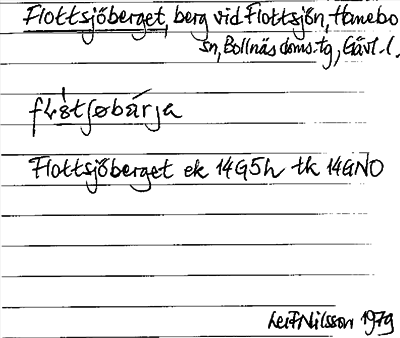 Flottsjöberget, berg vid Flottsjön, Hanebo
sn, Bollnäs doms.tg, Gävl. l.
Flottsjöberget ek 14G5h tk 14GNO
Leif Nilsson 1979